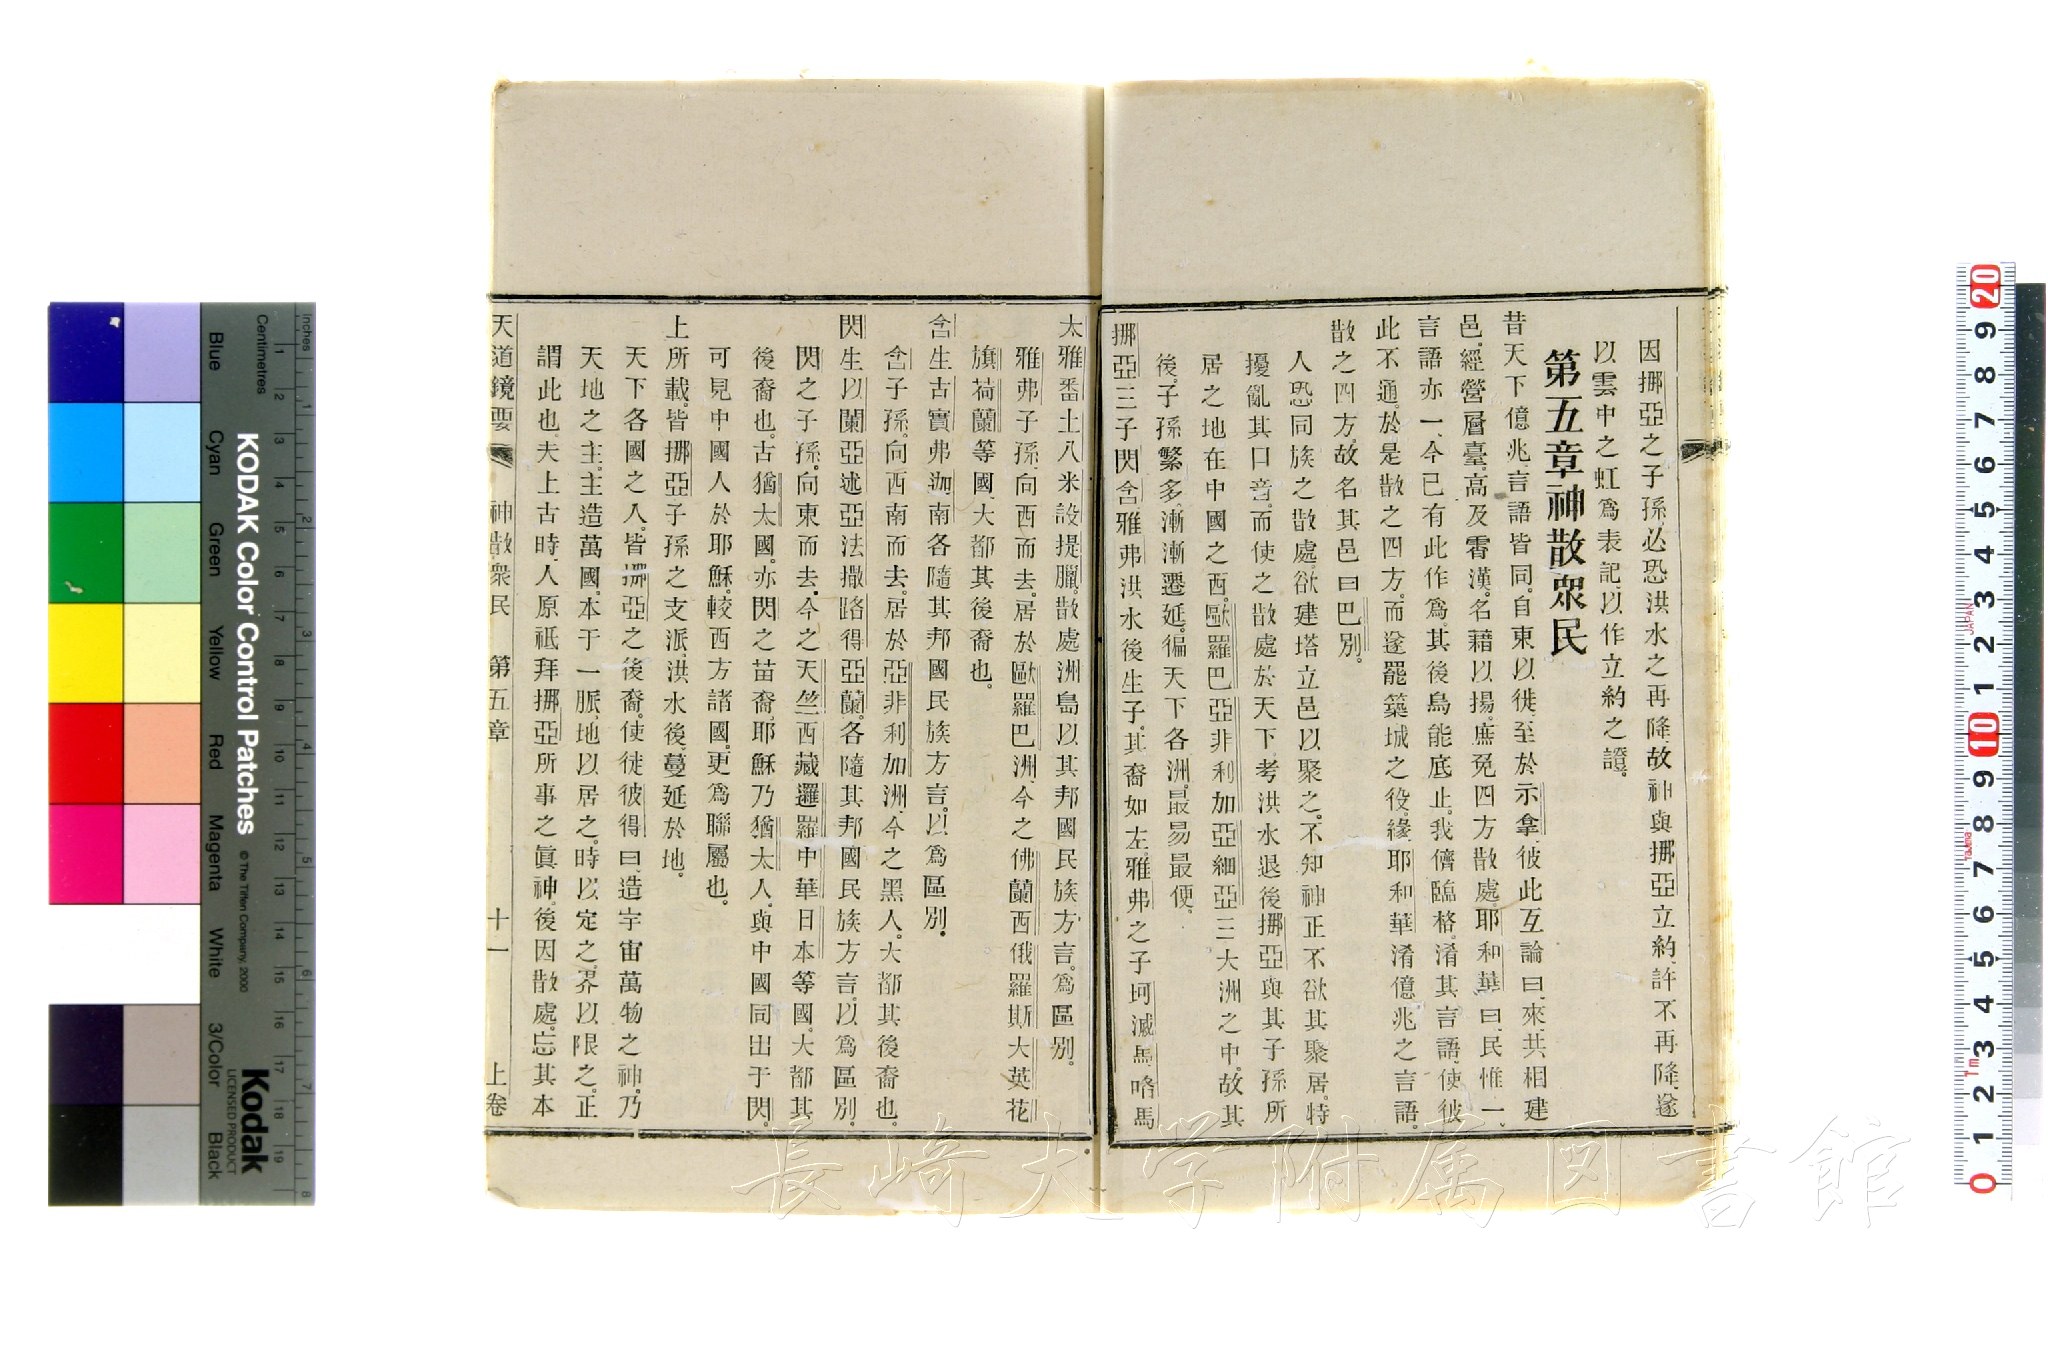 因挪亞之子孫、必恐洪水之再降、故神與挪亞立約、許不再降、遂
以雲中之虹爲表記、以作立約之證。
第五章神散衆民
昔天下億兆、言語皆同。自東以徙、至於示拿、彼此互論曰、來、共相建
邑、經營層臺、高及霄漢、名藉以揚、庶免四方散處。耶和華曰、民惟一、
言語亦一、今已有此作爲、其後烏能底止。我儕臨格、淆其言語、使彼
此不通。於是散之四方、而遂罷築城之役。緣耶和華淆億兆之言語、
散之四方、故名其邑曰巴別。
人恐同族之散處、欲建塔立邑以聚之、不知神正不欲其聚居、特
擾亂其口音、而使之散處於天下。考洪水退後、挪亞與其子孫所
居之地在中國之西、歐羅巴亞非利加亞細亞三大洲之中、故其
後子孫繁多、漸漸遷延、徧天下各洲、最易最便。
挪亞三子閃含雅弗、洪水後生子、其裔如左、雅弗之子坷滅馬咯馬
太雅番土八米設提臘、散處洲島、以其邦國民族方言、爲區別。
雅弗子孫、向西而去、居於歐羅巴洲、今之佛蘭西俄羅斯大英花
旗荷蘭等國、大都其後裔也。
含生古實弗迦南各隨其邦國民族方言、以爲區別。
含子孫、向西南而去、居於亞非利加洲、今之黑人、大都其後裔也。
閃生以蘭亞述亞法撒路得亞蘭、各隨其邦國民族方言、以爲區別。
閃之子孫、向東而去、今之天竺西藏暹羅中華日本等國、大都其
後裔也。古猶太國、亦閃之苗裔、耶穌乃猶太人、與中國同出于閃、
可見中國人於耶穌、較西方諸國、更爲聯屬也。
上所載、皆挪亞子孫之支派、洪水後、蔓延於地。
天下各國之人、皆挪亞之後裔。使徒彼得曰、造宇宙萬物之神、乃
天地之主、主造萬國、本于一脈、地以居之、時以定之、界以限之、正
謂此也。夫上古時、人原祇拜挪亞所事之眞神、後因散處、忘其本
天道鏡要 神散衆民 第五章 十一 上卷
長崎大学附属図書館
KODAK Color Control Patches
© The Tiffen Company, 2000
Kodak
LICENSED PRODUCT
Inches 1 2 3 4 5 6 7 8
Centimetres 1 2 3 4 5 6 7 8 9 10 11 12 13 14 15 16 17 18 19
Blue Cyan Green Yellow Red Magenta White 3/Color Black
20 9 8 7 6 5 4 3 2 1 10 9 8 7 6 5 4 3 2 1 0
JAPAN
1m